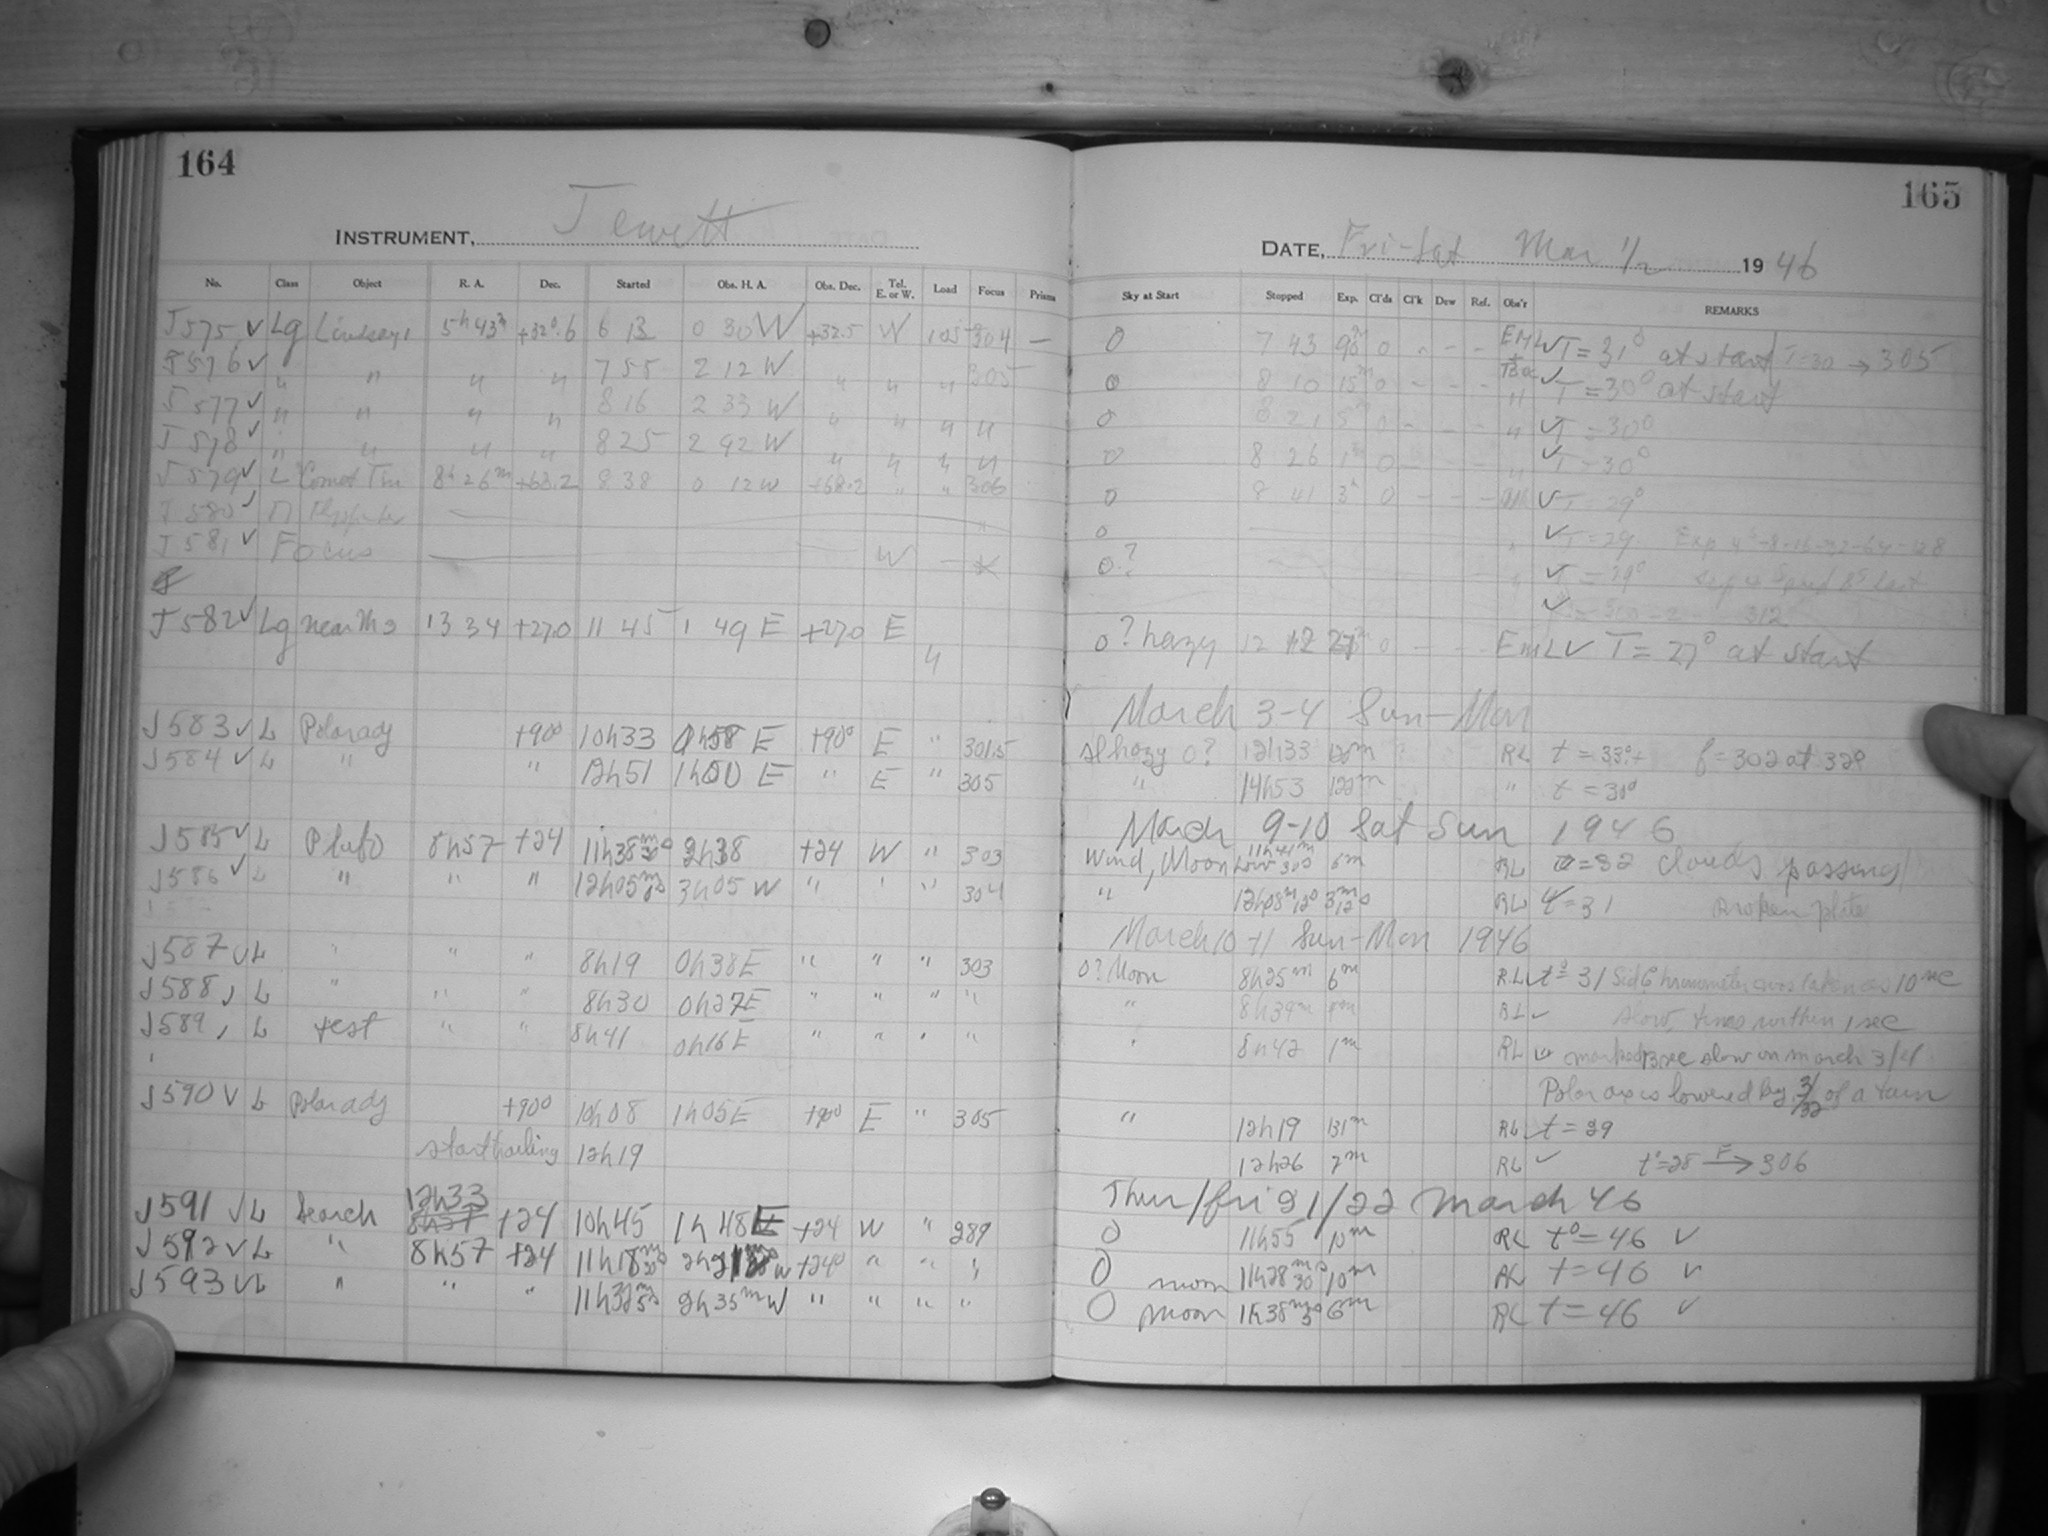 164
INSTRUMENT, Jewett
No. Class Object R. A. Dec. Started Obs. H. A. Obs. Dec. Tel. E. or W. Load Focus Prisms
J575 ✓ Lg Lindsay 1 5h 43m +32°.6 6 13 0 30 W +32.5 W 105 304 —
J576 ✓ " " " " 7 55 2 12 W " " " 305
J577 ✓ " " " " 8 16 2 33 W " " " "
J578 ✓ " " " " 8 25 2 42 W " " " "
J579 ✓ L Comet Tim 8h 26m +63.2 8 38 0 12 W +63.2 " " 306
J580 ✓
J581 ✓ Focus W — *
J582 ✓ Lg near M3 13 34 +27.0 11 45 1 49 E +27.0 E "
J583 ✓ L Polar adj +90° 10h33 0h58 E +90° E " 301.5
J584 ✓ L " " 12h51 E " E " 305
J585 ✓ L Pluto 8h57 +24 11h38m 2h38 +24 W " 303
J586 ✓ L " " " 12h05m 3h05 W " " " 304
J587 ✓ L " " " 8h19 0h38 E " " " 303
J588 ✓ L " " " 8h30 0h27 E " " " "
J589 ✓ L test " " 8h41 0h16 E " " " "
J590 ✓ L Polar adj +90° 10h08 1h05 E +90° E " 305
start trailing 12h19
12h33
J591 ✓ L Search +24 10h45 1h48 E +24 W " 289
J592 ✓ L " 8h57 +24 11h18m W +24° " " "
J593 ✓ L " " " 11h32m 2h35m W " " " "
165
DATE, Fri-Sat Mar 1/2 1946
Sky at Start Stopped Exp. Cl'ds Cl'k Dew Ref. Obs'r REMARKS
0 7 43 90m 0 - - - EML ✓ T = 31° at start / T=30 → 305
0 8 10 15m 0 - - - " ✓ T = 30° at start
0 8 21 5m - - - " ✓ T = 30°
0 8 26 1m 0 - - - " ✓ T = 30°
0 8 41 3m 0 - - - ✓ T = 29°
0 " ✓ T = 29 Exp 4s-8-16-32-64-128
0? " ✓ T = 29°
✓ 312
0? hazy 12 0 - - - EML ✓ T = 27° at start
March 3-4 Sun-Mon
sl hazy 0? 12h33 120m RL t = 33°+ f = 302 at 32°
" 14h53 122m " t = 31°
March 9-10 Sat Sun 1946
Wind, Moon 11h44m 6m RL = 32 clouds passing
" 12h08m 3m RL = 31 Broken plate
March 10-11 Sun-Mon 1946
0? Moon 8h25m 6m RL ✓ t° = 31 Sid Chronometer was taken as 10 sec
" 8h39m RL ✓ slow, times within 1 sec
" 8h42 1m RL ✓ slow on March 3/4
Polar axis lowered by 3/32 of a turn
" 12h19 131m RL ✓ t = 29
12h26 7m RL ✓ t° = 28 F → 306
Thur/fri 21/22 March 46
0 11h55 10m RL t° = 46 ✓
0 moon 11h28m 30 10m RL t = 46 ✓
0 moon 11h38m 6m RL t = 46 ✓